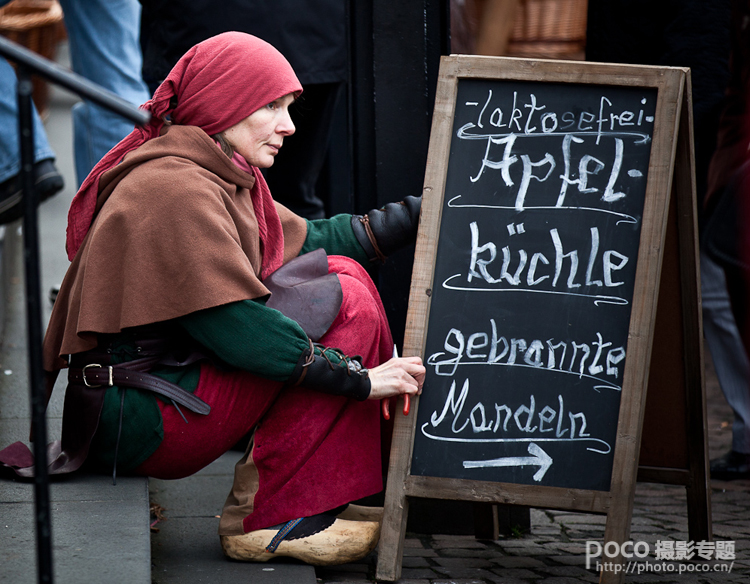 -laktosefrei-
Apfel-
küchle
gebrannte
Mandeln
poco 摄影专题
http://photo.poco.cn/